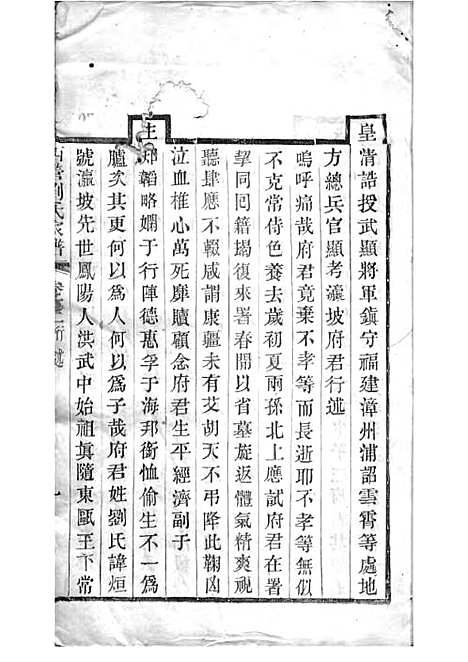 皇淸誥授武顯將軍鎮守福建漳州浦詔雲霄等處地
方總兵官顯考瀛坡府君行述
嗚呼痛哉府君竟棄不孝等而長逝耶不孝等無似
不克常侍色養去歲初夏兩孫北上應試府君在署
挈同囘籍搗復來署春開以省墓旋返體氣精爽視
聽肆應不輟咸謂康疆未有艾胡天不弔降此鞠凶
泣血椎心萬死靡贖顧念府君生平經濟副于
主知韜略嫻于行陣德惠孚于海邦銜恤偷生不一爲
臚矣其更何以爲人何以爲子哉府君姓劉氏諱烜
號瀛坡先世鳳陽人洪武中始祖眞隨東甌王下常
劉氏家譜 行述